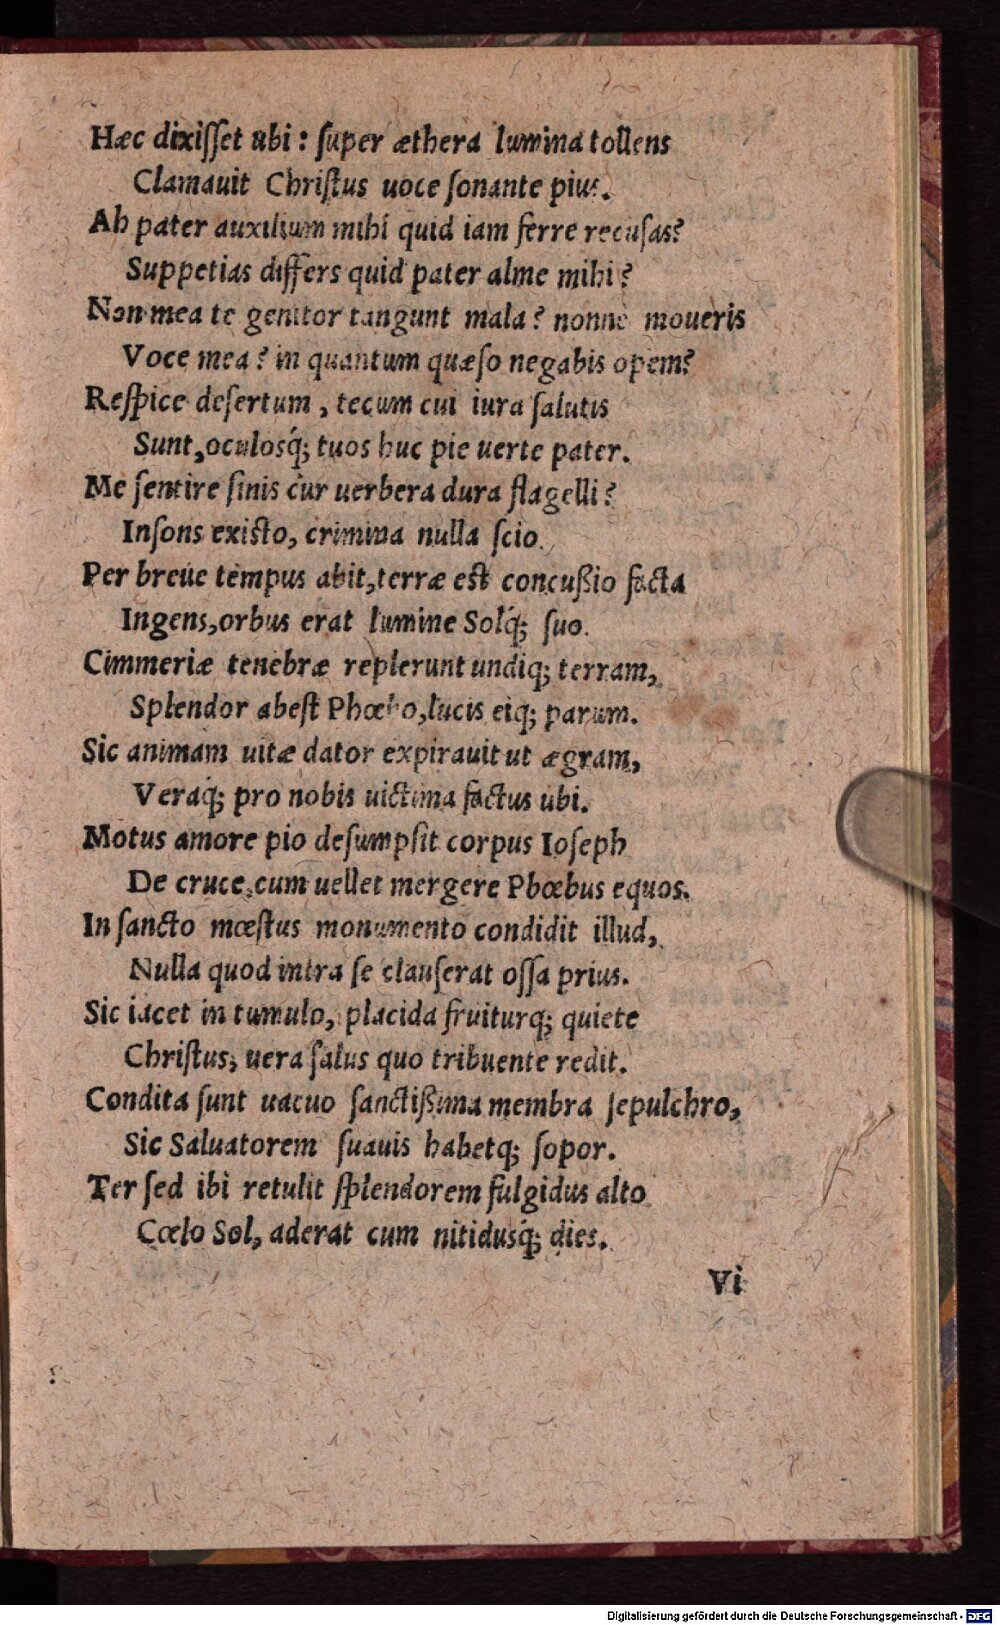 Hæc dixiſſet ubi: ſuper æthera lumina tollens
Clamauit Chriſtus uoce ſonante pius.
Ah pater auxilium mihi quid iam ferre recuſas?
Suppetias differs quid pater alme mihi?
Non mea te genitor tangunt mala? nonne moueris
Voce mea? in quantum quæſo negabis opem?
Reſpice deſertum, tecum cui iura ſalutis
Sunt, oculosq́; tuos huc pie uerte pater.
Me ſentire ſinis cur uerbera dura flagelli?
Inſons exiſto, crimina nulla ſcio.
Per breue tempus abit, terræ eſt concußio facta
Ingens, orbus erat lumine Solq́; ſuo.
Cimmeriæ tenebræ replerunt undiq; terram,
Splendor abeſt Phœbo, lucis eiq; parum.
Sic animam uitæ dator expirauit ut ægram,
Veraq́; pro nobis uictima factus ubi.
Motus amore pio deſumpſit corpus Ioſeph
De cruce, cum uellet mergere Phœbus equos.
In ſancto mœſtus monumento condidit illud,
Nulla quod intra ſe clauſerat oſſa prius.
Sic iacet in tumulo, placida fruiturq; quiete
Chriſtus, uera ſalus quo tribuente redit.
Condita ſunt uacuo ſanctißima membra ſepulchro,
Sic Saluatorem ſuauis habetq; ſopor.
Ter ſed ibi retulit ſplendorem fulgidus alto
Cœlo Sol, aderat cum nitidusq́; dies.
Vi
Digitalisierung gefördert durch die Deutsche Forschungsgemeinschaft - DFG